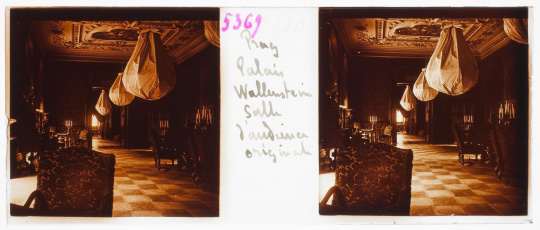 5369
Prag
Palais
Wallenstein
Salle
d'audience
originale